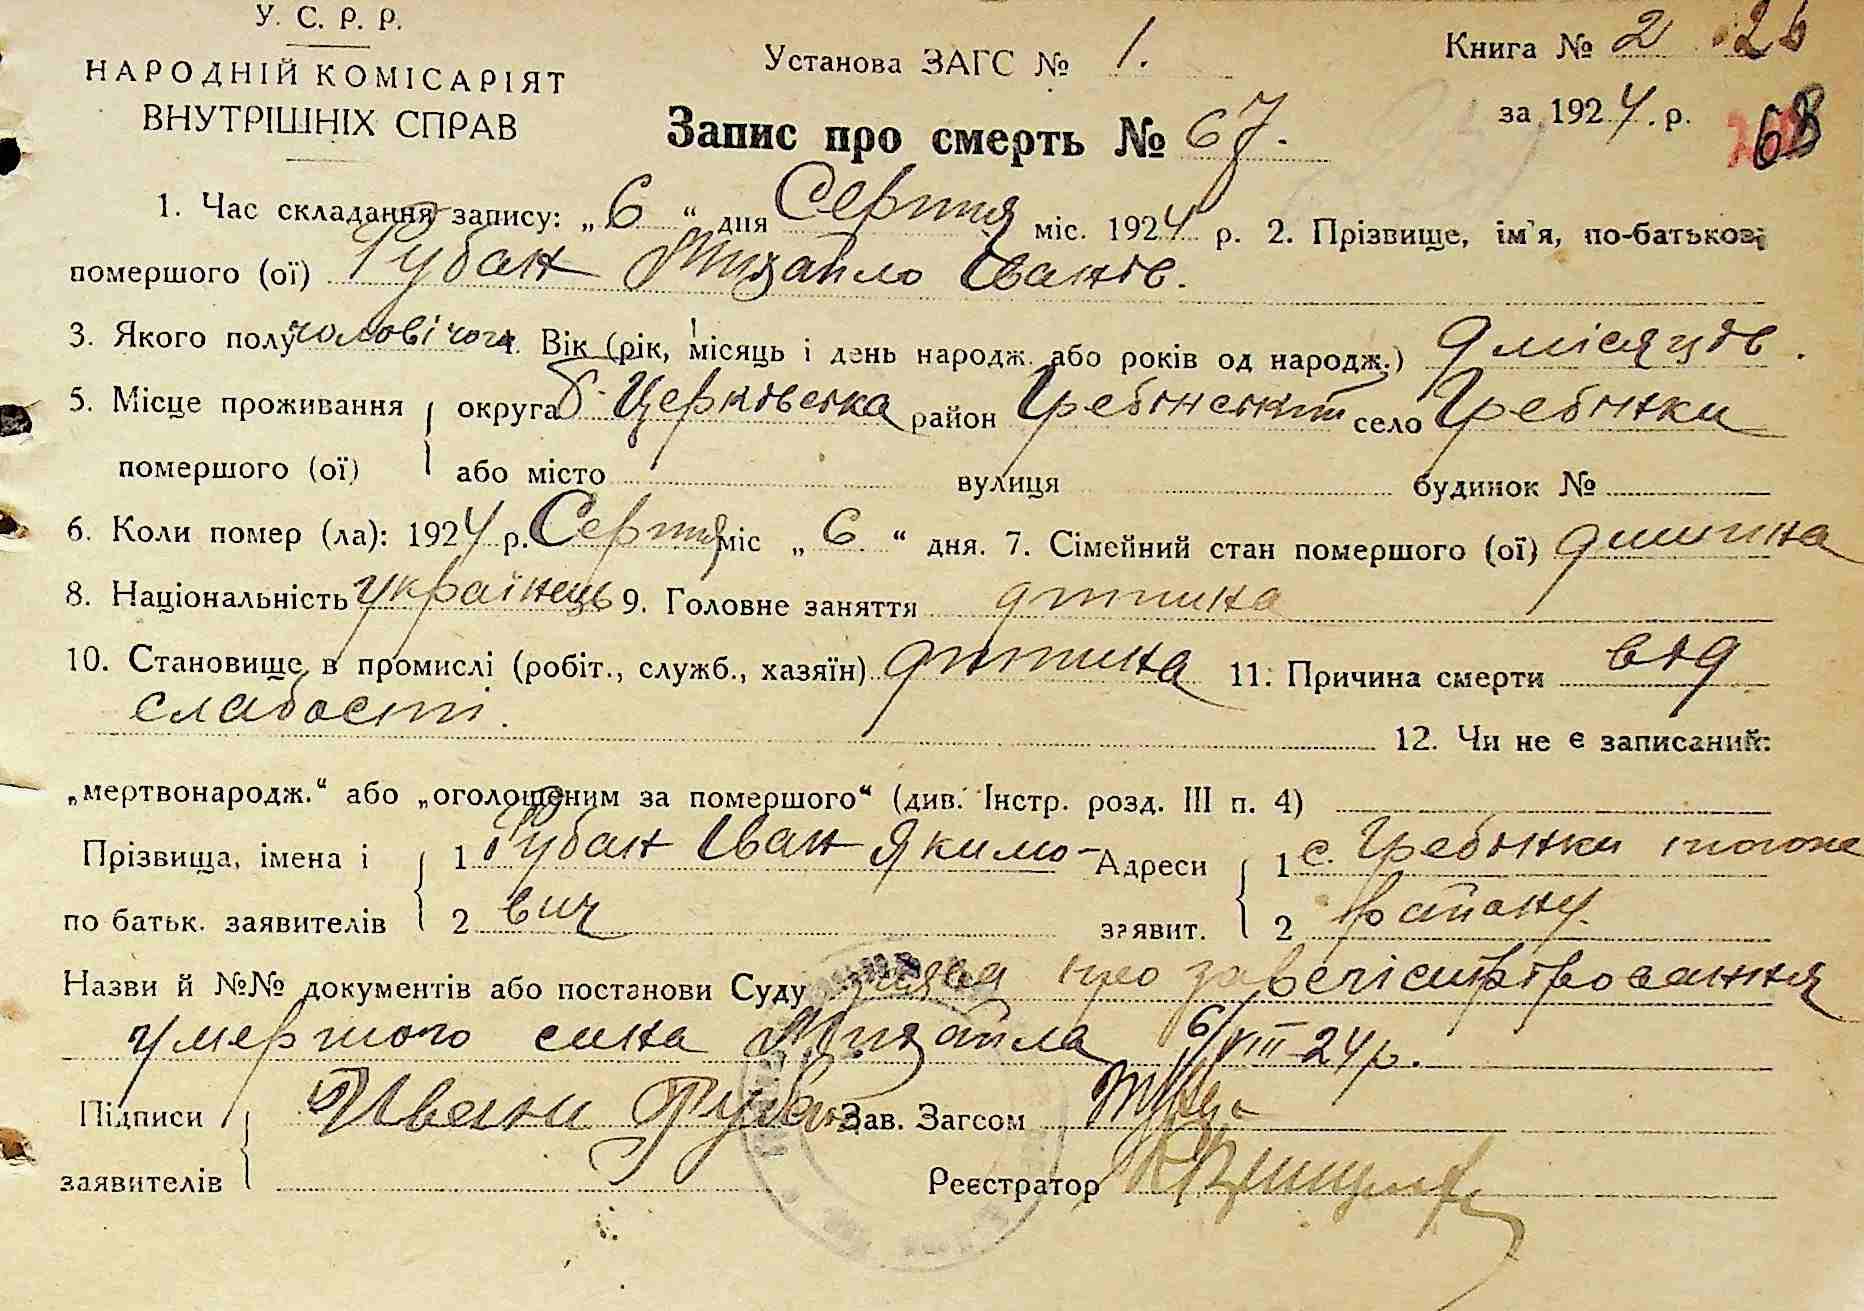 У. С. Р. Р.
НАРОДНІЙ КОМІСАРІЯТ
ВНУТРІШНІХ СПРАВ
Установа ЗАГС № 1.
Книга № 2 26
за 1924 . р. 68
Запис про смерть № 67.
1. Час складання запису: „ 6 “ дня Серпня міс. 1924 р. 2. Прізвище, ім'я, по-батькові
помершого (ої) Губан Михайло Іванів.
3. Якого полу чоловічого 4. Вік (рік, місяць і день народж. або років од народж.) 9 місяців.
5. Місце проживання округа Б-Церківська район Гребінський село Гребінки
помершого (ої) або місто вулиця будинок №
6. Коли помер (ла): 1924 р. Серпня міс „ 6 “ дня. 7. Сімейний стан помершого (ої) дитина
8. Національність українець 9. Головне заняття дитина
10. Становище в промислі (робіт., служб., хазяїн) дитина 11. Причина смерти від
слабості.
12. Чи не є записаний:
„мертвонародж.“ або „оголошеним за помершого“ (див. Інстр. розд. III п. 4)
Прізвища, імена і 1 Губан Іван Якимо- Адреси 1 с. Гребінки того же
по батьк. заявителів 2 вич заявит. 2 району.
Назви й №№ документів або постанови Суду заява про зареєстріровання
умершого сина Михайла 6/VIII-24 р.
Підписи Иван Губан Зав. Загсом
заявителів Реєстратор